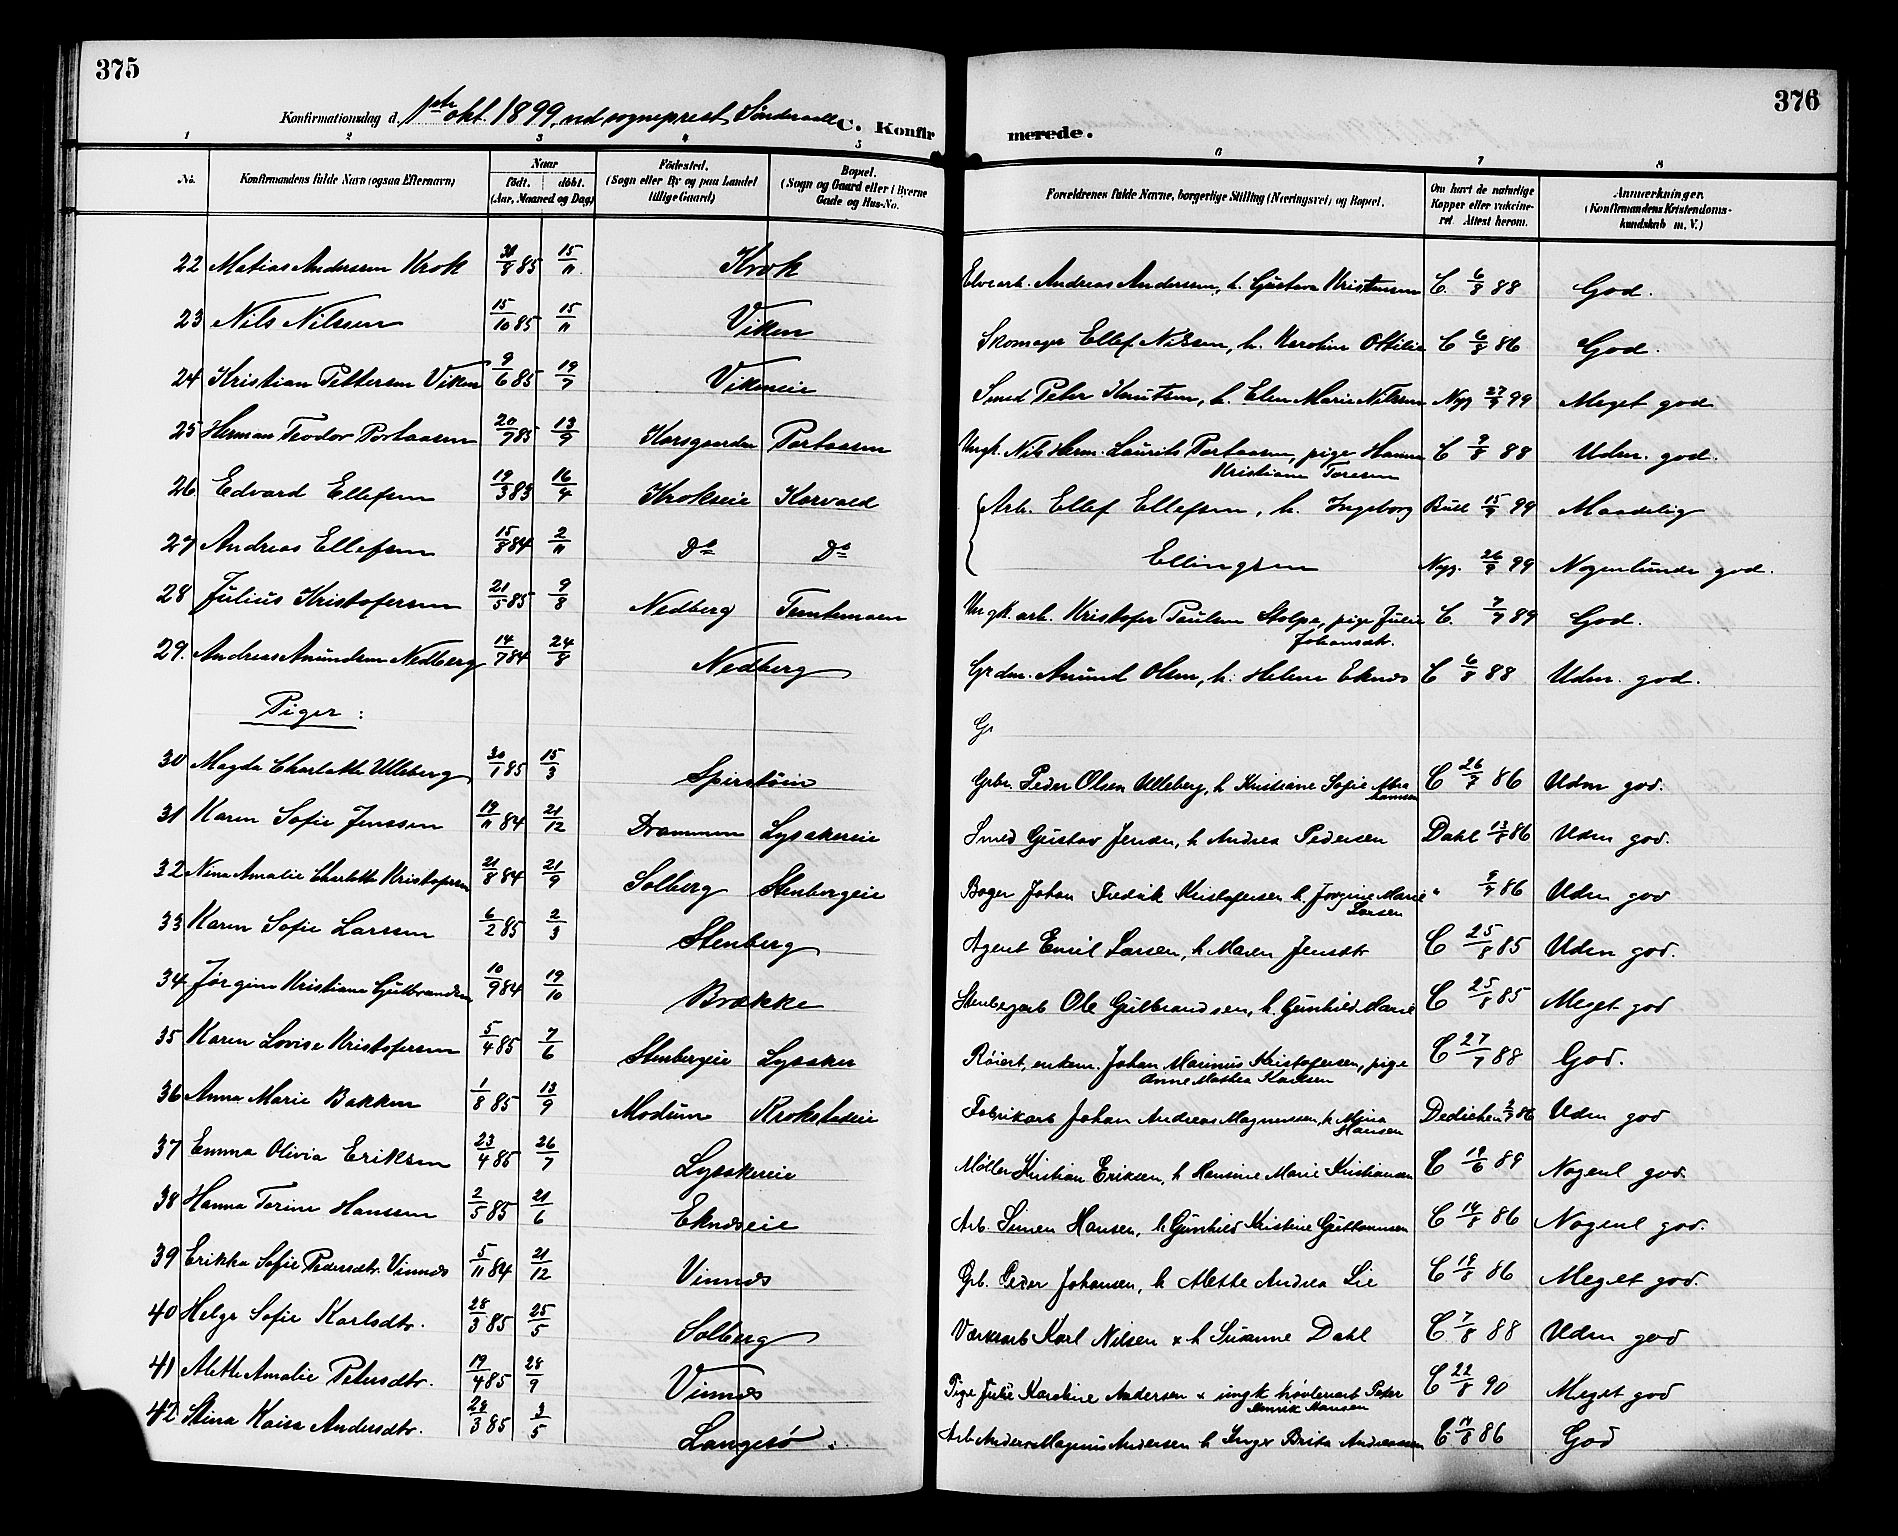 375
376
Konfirmationsdag d. 1ste okt. 1899, ved sogneprest Sönderaal
C. Konfirmerede.
1 2 3 4 5 6 7 8
No. Konfirmandens fulde Navn (ogsaa Efternavn) Naar födt. döbt. (Aar, Maaned og Dag) Födested. (Sogn eller By og paa Landet tillige Gaard) Bopæl. (Sogn og Gaard eller i Byerne Gade og Hus-No. Forældrenes fulde Navne, borgerlige Stilling (Næringsvei) og Bopæl. Om havt de naturlige Kopper eller vakcineret. Attest herom. Anmærkninger. (Konfirmandens Kristendomskundskab m. V.)
22 Matias Andersen Krok 85 15/11 Krok Elvearb. Andreas Andersen, h. Gustava Kristensen C. 6/8 88 God.
23 Nils Nilssen 15/10 85 15/11 Viken Skomager Ellef Nilsen, h. Karoline Ottilie C 6/8 86 God.
24 Kristian Pettersen Viken 9/6 85 19/7 Vikeneie Smed Peter Knutsen, h. Elen Marie Nilssen Nyg 27/9 99 Meget god
25 Herman Teodor Portaasen 20/7 85 13/9 Korsgaarden Portaasen Ungk. Nils Herm. Laurits Portaasen, pige Hanna Kristiane Toresen C 9/8 88 Uden. god.
26 Edvard Ellefsen 19/3 83 16/4 Krokseie Korvald Arb. Ellef Ellefsen, h. Ingeborg Bull 15/9 99 Maadelig
27 Andreas Ellefsen 15/8 84 2/11 Do Do Ellingsen Nyg. 26/9 99 Nogenlunde god.
28 Julius Kristofersen 21/5 85 9/8 Nedberg Tomtemoen Ungk. arb. Kristofer Paulsen Stolpe, pige Julie Johansdt. C. 7/7 89 God.
29. Andreas Amundsen Nedberg 14/7 84 24/8 Nedberg Grdm. Amund Olsen, h. Helene Eknes C 6/8 88 Uden. god.
Piger:
30 Magda Charlotte Ulleberg 30/1 85 15/3 Spirstøin Grbr. Peder Olsen Ulleberg, h Kristiane Sofie C 26/7 86 Uden god.
31 Karen Sofie Jenssen 19/11 84 21/12 Drammen Lysakereie Smed Gustav Jensen, h Andrea Pedersen Dahl 13/8 86 Uden god.
32 Nina Amalie Charlotte Kristofersen 21/8 84 21/9 Solberg Stenbergeie Bager Johan Fredrik Kristofersen h. Jørgine Marie Larsen " 9/7 86 Uden god
33 Karen Sofie Larsen 6/2 85 2/3 Stenberg Agent Emil Larsen, h Maren Jensdtr C 25/8 85 Uden god.
34 Jørgine Kristiane Gulbrandsen 10/9 84 19/10 Brække Stenbergarb Ole Gulbrandsen, h. Gunhild Marie C 25/8 85 Meget god
35 Karen Lovise Kristofersen 5/4 85 7/6 Stenbergeie Lysaker Røiert, enkem. Johan Marinius Kristofersen, pige Anne Mathea Karlsen C 27/7 88 God.
36 Anna Marie Bakken 1/8 85 13/9 Modum Krokstadeie Fabrikarb Johan Andreas Magnussen, h. Mina Hansen Dedichen 86 Uden god
37 Emma Olivia Eriksen 23/4 85 26/7 Lysakereie Møller Kristian Eriksen, h Hansine Marie Kristiansen C 19/6 89 Nogenl god.
38 Hanna Torine Hansen 2/5 85 21/6 Eknæseie Arb. Simen Hansen, h Gunhild Kristine Guttormsen C 14/8 86 Nogenl god.
39 Erikka Sofie Pedersdtr. Vinnæs 5/11 84 21/12 Vinnæs Grb. Peder Johansen, h Mette Andrea Lie C 19/8 86 Meget god.
40 Helga Sofie Karlsdtr. 28/3 85 25/5 Solberg Værksarb Karl Nilsen x h Susanne Dahl C 7/8 88 Uden god
41 Alette Amalie Petersdtr. 19/4 85 28/9 Vinnæs Pige Julie Karoline Andersen x ungk høvleriarb Peter Amrik Hansen C 22/8 90 Meget god
42 Stina Kaisa Andersdtr. 28/3 85 3/5 Langesø Arb. Anders Magnus Andersen h Inger Brita Andreassen C. 14/8 86 God